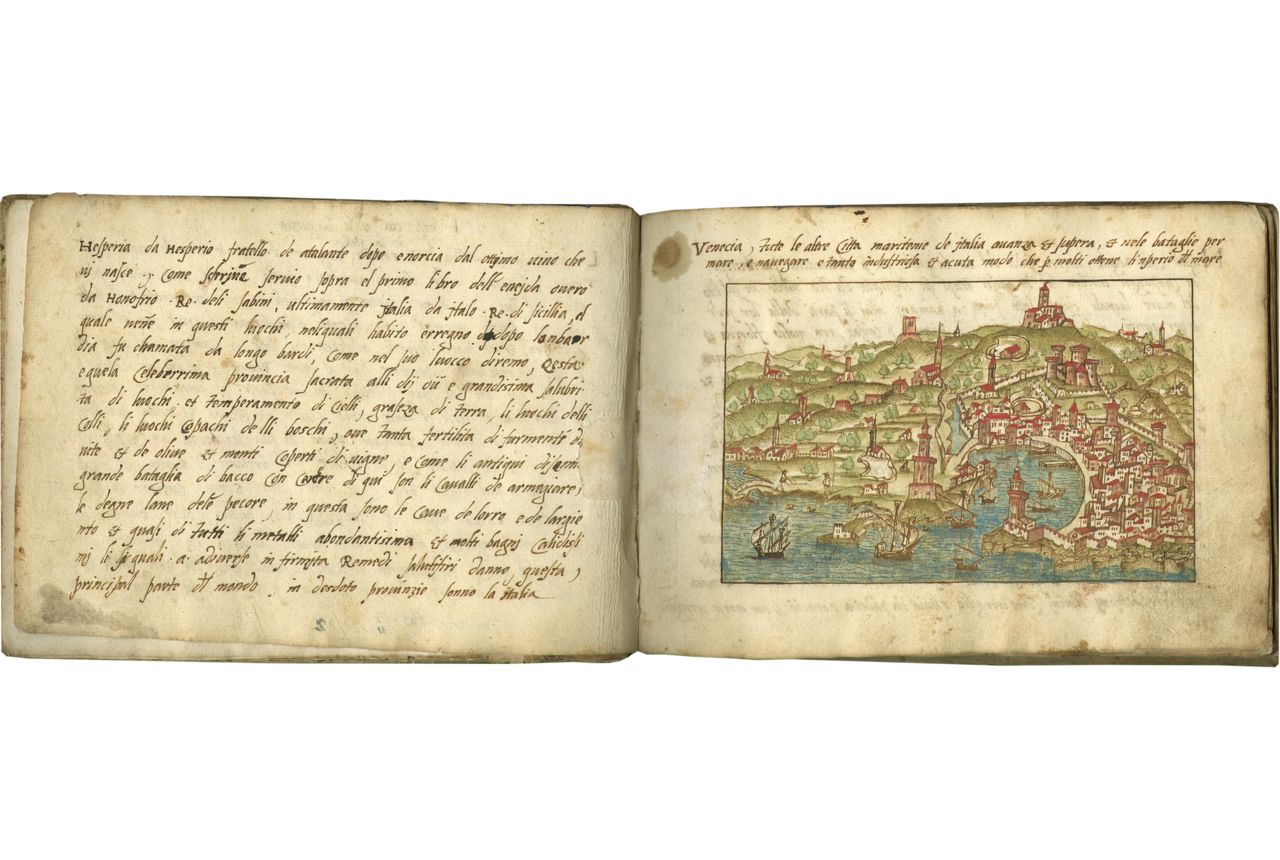 Hesperia da Hesperio fratello de atalante dopo enorcia dal ottimo uino che
ui nasce, Come scriue seruio sopra el primo libro dell eneida ouero
da Honofrio .Re. deli sabini, ultimamente italia da Italo .Re. di sicilia, el
quale neñe in questi luochi neliquali habito e rregno dopo lonbar
dia fu chamata da longo bardi, Come nel suo luoco diremo, Qesta
e quela Celeberrima prouincia sacrata alli dij e grandisima salubri
ta di luochi et temperamento di Cielli, graseza di terra, li luochi delli
Colli, li luochi Copachi delli boschi, oue tanta fertilita di furmente, di
uite et de oliue et monti Coperti di uigne, e come li antiqui
grande bataglia di bacco Con qui son li Caualli de armegiare,
le degne lane dele pecore, in questa sono le Caue de lorro e de largie
nto et quasi di tutti li metalli abondantisima et molti bagnj Calidisi
mj li quali .a. adiuerse in firmita Remedi salutifiri danno questa,
principal parte dl mondo, in desdoto prouinzie sonno la italia
Venecia, tute le altre Citta maritene de italia auanza et supera, et nele bataglie per
mare, e nauegare e tanto industriosa et acuta modo che p molti ottene linperio dl mare